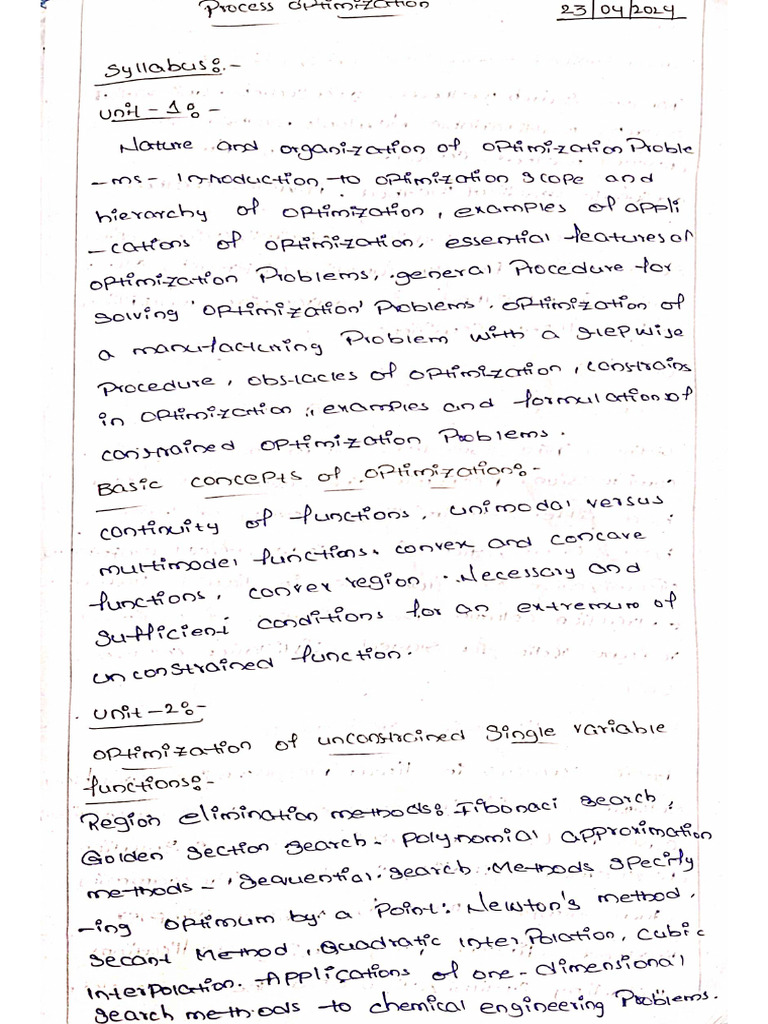 Process optimization
23/04/2024
Syllabus:-
Unit - 1:-
Nature and organization of optimization Proble
-ms- Introduction to optimization scope and
hierarchy of optimization, examples of appli
-cations of optimization, essential features of
optimization Problems, general Procedure for
solving optimization Problems. optimization of
a manufacturing Problem with a stepwise
Procedure, obstacles of optimization, constrains
in optimization, examples and formulations of
constrained optimization Problems.
Basic concepts of optimization:-
continuity of functions, unimodal versus
multimodel functions, convex and concave
functions, convex region. Necessary and
sufficient conditions for an extremum of
unconstrained function.
Unit -2:-
optimization of unconstrained single variable
functions:-
Region elimination methods: Fibonaci search,
Golden section search- polynomial approximation
methods- sequential search. Methods specify
-ing optimum by a Point: Newton's method,
secant Method, Quadratic interpolation, cubic
interpolation. Applications of one-dimensional
search methods to chemical engineering Problems.